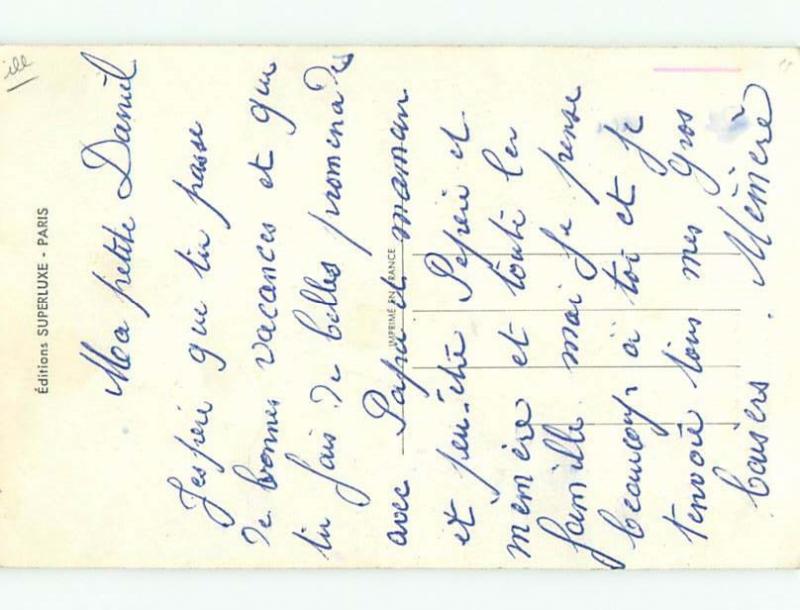 ill
Éditions SUPERLUXE - PARIS
IMPRIMÉ EN FRANCE
Ma petite Daniel
J'espère que tu passe
de bonnes vacances et que
tu fais de belles promenades
avec Papa et maman
et peu-être Pepère et
memère et toute la
famille. moi je pense
beaucoup à toi et je
t'envoie tous mes gros
baisers. Mémère